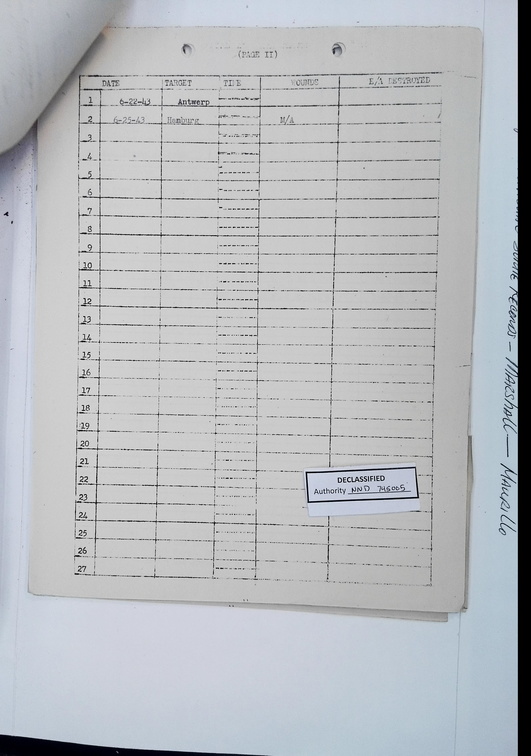 (PAGE II)
DATE TARGET TIME WOUNDS E/A DESTROYED
1 6-22-43 Antwerp
2 6-25-43 Hamburg M/A
3
4
5
6
7
8
9
10
11
12
13
14
15
16
17
18
19
20
21
22
23
24
25
26
27
DECLASSIFIED
Authority NND 745005
Records - Marshall - Maurillo